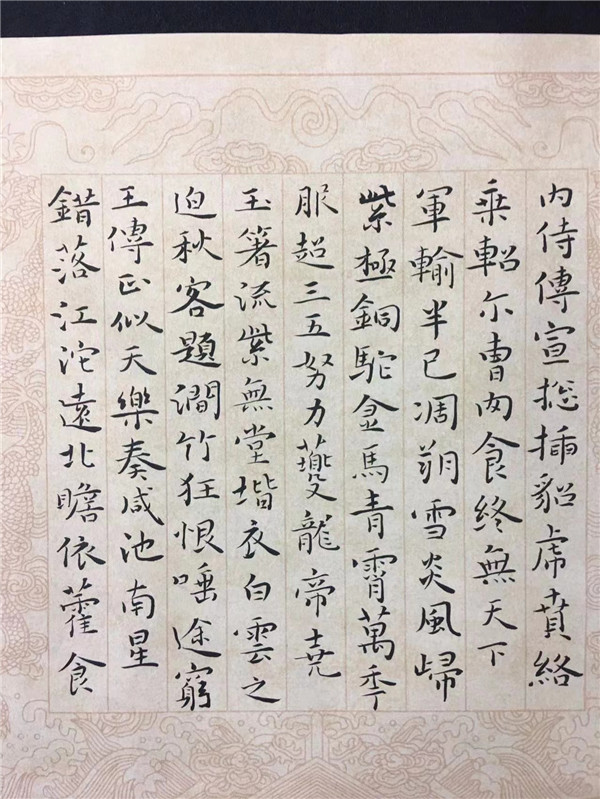 内侍傳宣捴插貂虎賁絡
乘軺尔曹肉食終無天下
軍輸半已凋朔雪炎風歸
紫極銅駝金馬青霄萬年
服超三五努力夔龍帝堯
玉箸流紫無堂堦衣白雲之
迫秋客題澗竹狂恨唾途窮
王傳正似天樂奏咸池南星
錯落江沱遠北瞻依藿食